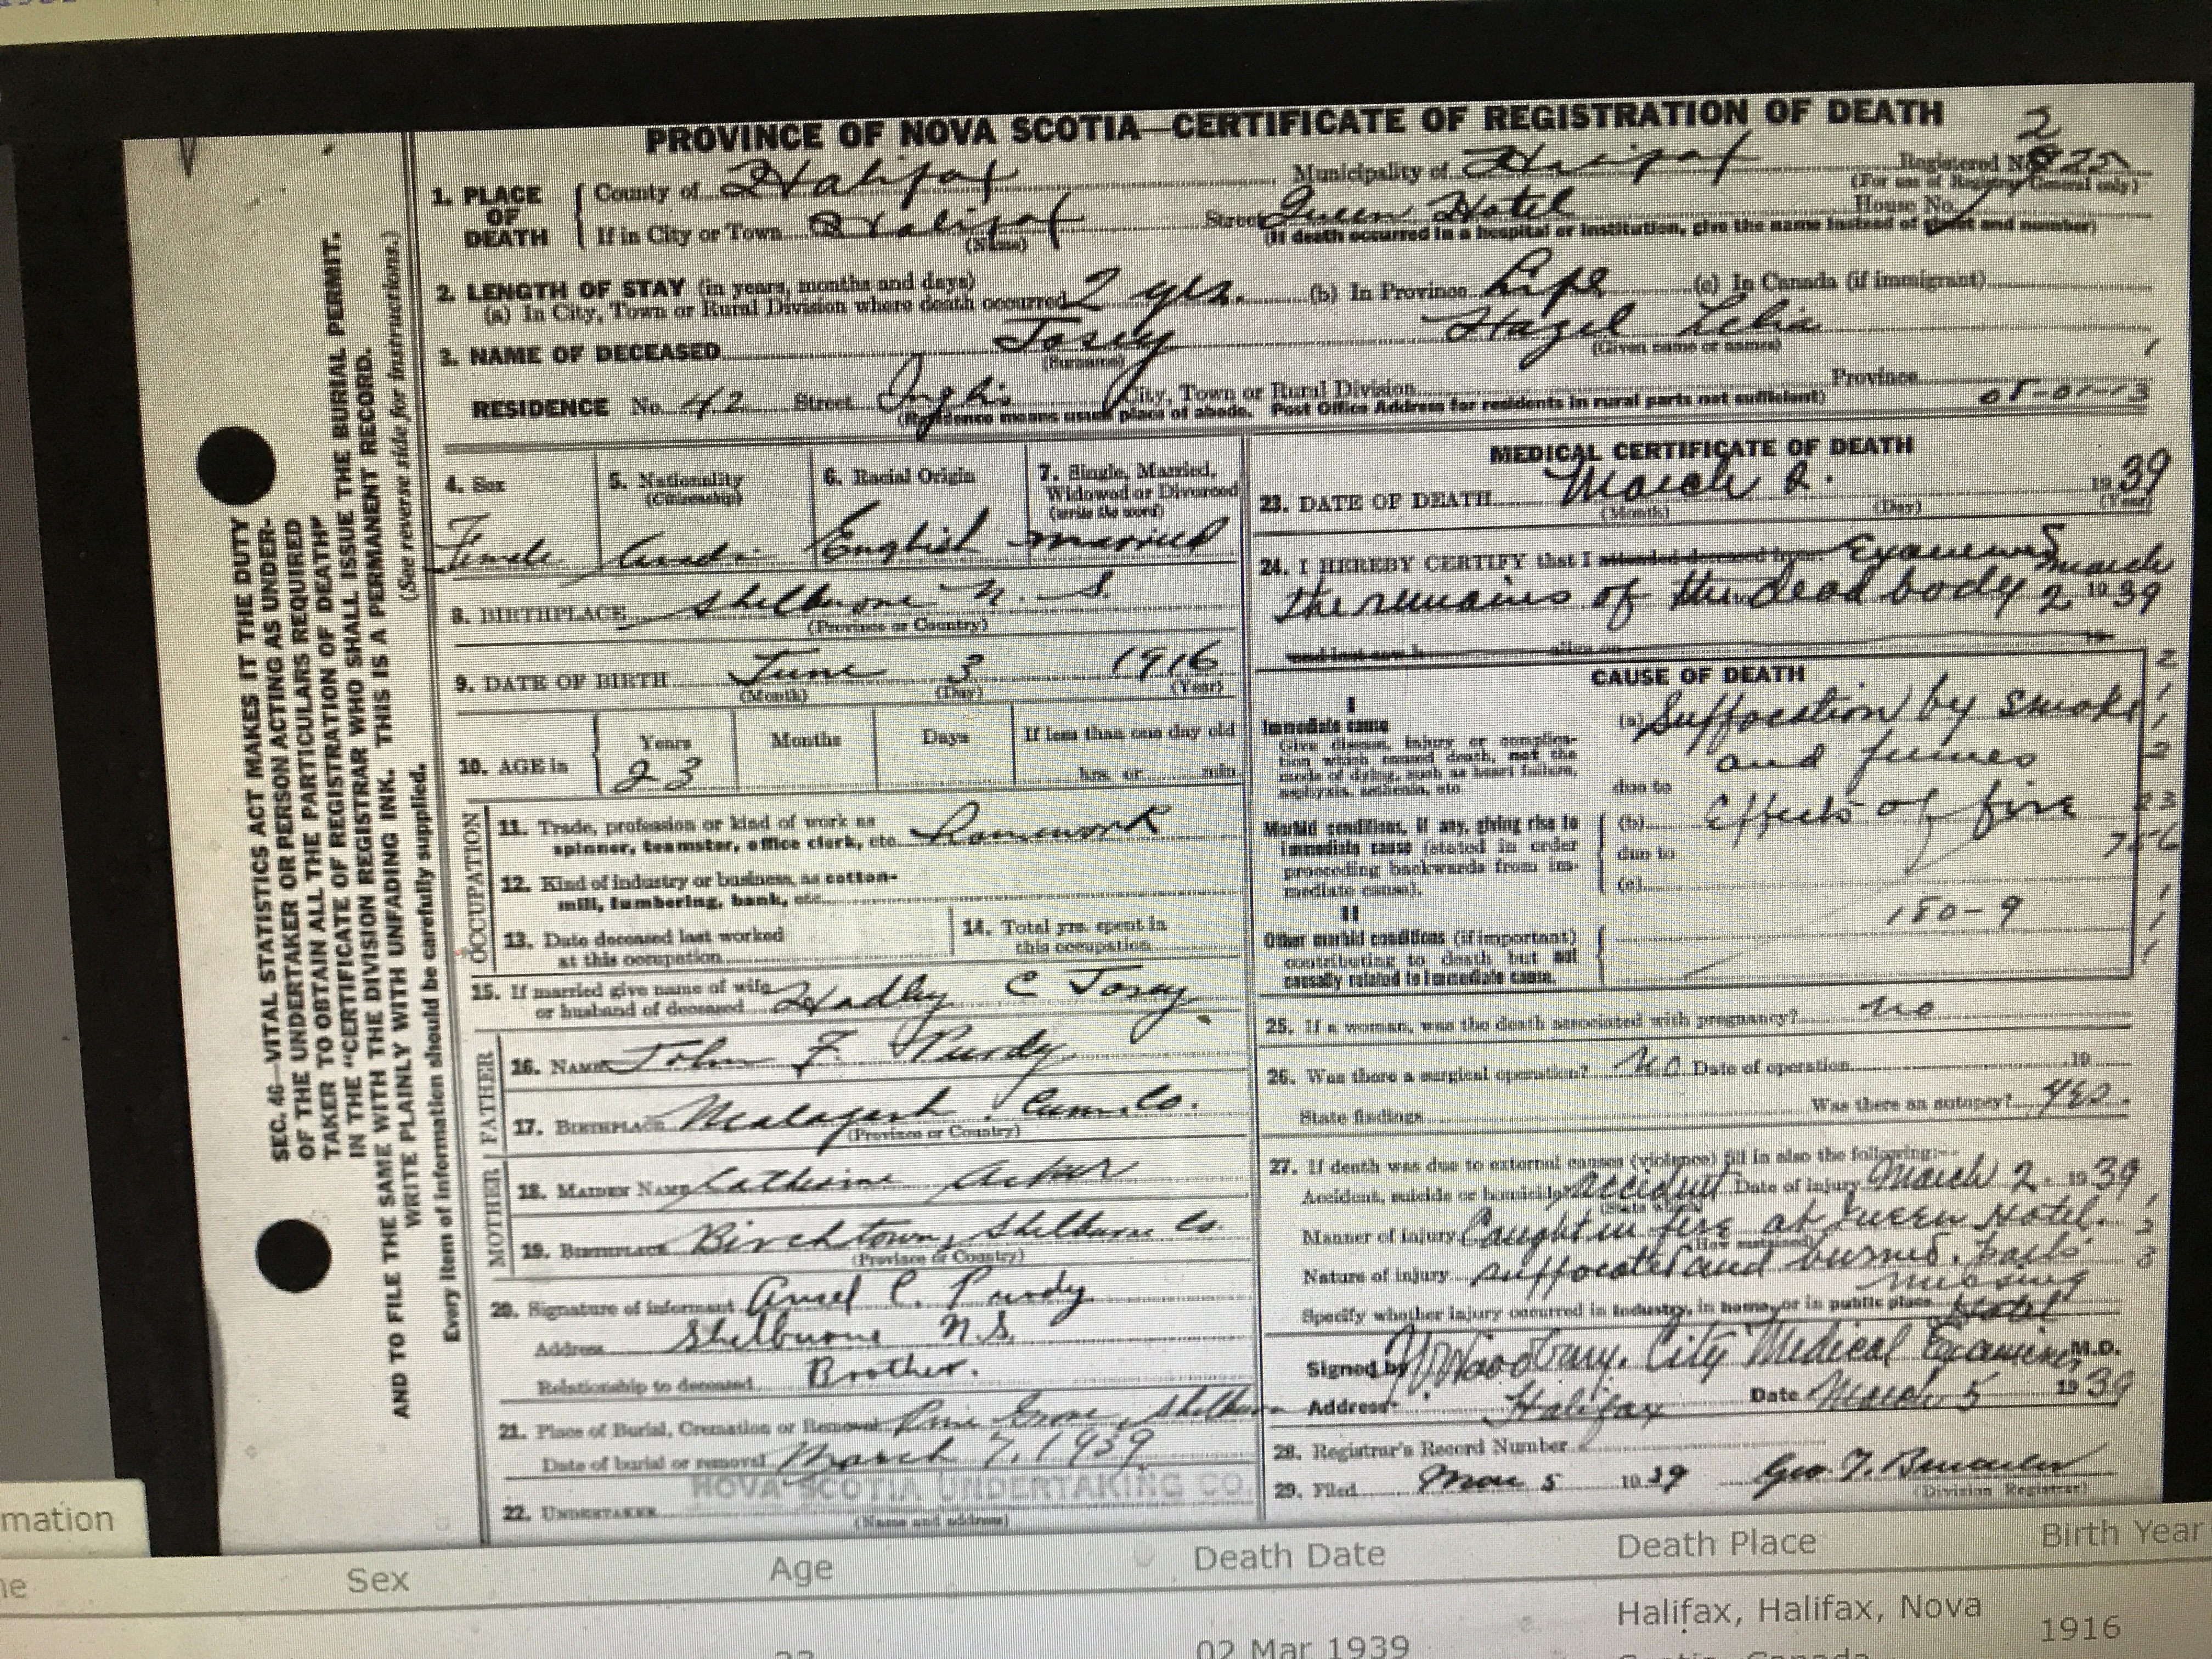 PROVINCE OF NOVA SCOTIA—CERTIFICATE OF REGISTRATION OF DEATH
1. PLACE OF DEATH
County of Halifax Municipality of Halifax Registered No.
(For use of Registry General only)
If in City or Town Halifax Street Queen Hotel House No.
(Name) (If death occurred in a hospital or institution, give the name instead of street and number)
2. LENGTH OF STAY (in years, months and days)
(a) In City, Town or Rural Division where death occurred 2 yrs. (b) In Province Life (c) In Canada (if immigrant)
3. NAME OF DECEASED Tosey Hazel Lelia
(Surname) (Given name or names)
RESIDENCE No. 42 Street Inglis City, Town or Rural Division Province
(Residence means usual place of abode. Post Office Address for residents in rural parts not sufficient) 05-01-13
4. Sex
Female
5. Nationality
(Citizenship)
6. Racial Origin
English
7. Single, Married,
Widowed or Divorced
(write the word)
married
8. BIRTHPLACE Shelburne N. S.
(Province or Country)
9. DATE OF BIRTH June 3 1916
(Month) (Day) (Year)
10. AGE in Years Months Days If less than one day old
23 hrs. or min.
OCCUPATION
11. Trade, profession or kind of work as
spinner, teamster, office clerk, etc. Housework
12. Kind of industry or business, as cotton-
mill, lumbering, bank, etc.
13. Date deceased last worked
at this occupation
14. Total yrs. spent in
this occupation
15. If married give name of wife
or husband of deceased Hadley C Tosey
FATHER
16. NAME John F. Purdy
17. BIRTHPLACE Malagash Cum. Co.
(Province or Country)
MOTHER
18. MAIDEN NAME Catherine Acker
19. BIRTHPLACE Birchtown, Shelburne Co.
(Province or Country)
20. Signature of informant C. Purdy
Address Shelburne N.S.
Relationship to deceased Brother.
21. Place of Burial, Cremation or Removal Pine Grove, Shelburne
Date of burial or removal March 7, 1939
NOVA SCOTIA UNDERTAKING CO.
22. UNDERTAKER
(Name and address)
MEDICAL CERTIFICATE OF DEATH
23. DATE OF DEATH March 2. 1939
(Month) (Day) (Year)
24. I HEREBY CERTIFY that I attended deceased from Examined
the remains of the dead body March 2 1939
and last saw h alive on 19
CAUSE OF DEATH
I
Immediate cause
Give disease, injury or complica-
tion which caused death, not the
mode of dying, such as heart failure,
asphyxia, asthenia, etc.
(a) Suffocation by smoke
and fumes
due to
Morbid conditions, if any, giving rise to
immediate cause (stated in order
proceeding backwards from im-
mediate cause).
(b) Effects of fire
due to
(c)
II
Other morbid conditions (if important)
contributing to death but not
causally related to immediate cause.
180-9
25. If a woman, was the death associated with pregnancy? no
26. Was there a surgical operation? No. Date of operation 19
State findings Was there an autopsy? yes.
27. If death was due to external causes (violence) fill in also the following:—
Accident, suicide or homicide accident Date of injury March 2. 1939
Manner of injury Caught in fire at Queen Hotel.
(How sustained)
Nature of injury suffocated and burned. parts
missing
Specify whether injury occurred in industry, in home, or in public place Hotel
Signed by Woodbury. City Medical Examiner M.D.
Address Halifax Date March 5 1939
28. Registrar's Record Number
29. Filed Mar 5 1939 Geo. T.
(Division Registrar)
SEC. 46—VITAL STATISTICS ACT MAKES IT THE DUTY
OF THE UNDERTAKER OR PERSON ACTING AS UNDER-
TAKER TO OBTAIN ALL THE PARTICULARS REQUIRED
IN THE "CERTIFICATE OF REGISTRATION OF DEATH"
AND TO FILE THE SAME WITH THE DIVISION REGISTRAR WHO SHALL ISSUE THE BURIAL PERMIT.
WRITE PLAINLY WITH UNFADING INK. THIS IS A PERMANENT RECORD.
Every item of information should be carefully supplied. (See reverse side for instructions.)
mation
Sex Age Death Date Death Place Birth Year
02 Mar 1939
Halifax, Halifax, Nova
1916